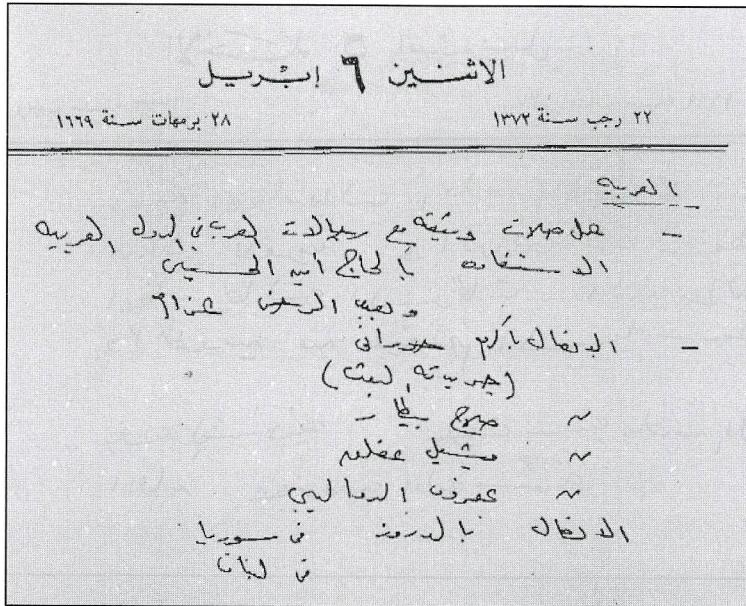 الاثنين ٦ إبريل
٢٢ رجب سنة ١٣٧٢
٢٨ برمهات سنة ١٦٦٩
العربيه
- عمل صلات وثيقه مع رجالات العرب في الدول العربيه
الاستفاده بالحاج أمين الحسيني
وعبد الرحمن عزام
- الاتصال بأكرم حوراني
(جريدته البعث)
" صلاح بيطار
" ميشيل عفلق
" الدواليبي
الاتصال بالدروز في سوريا
في لبنان